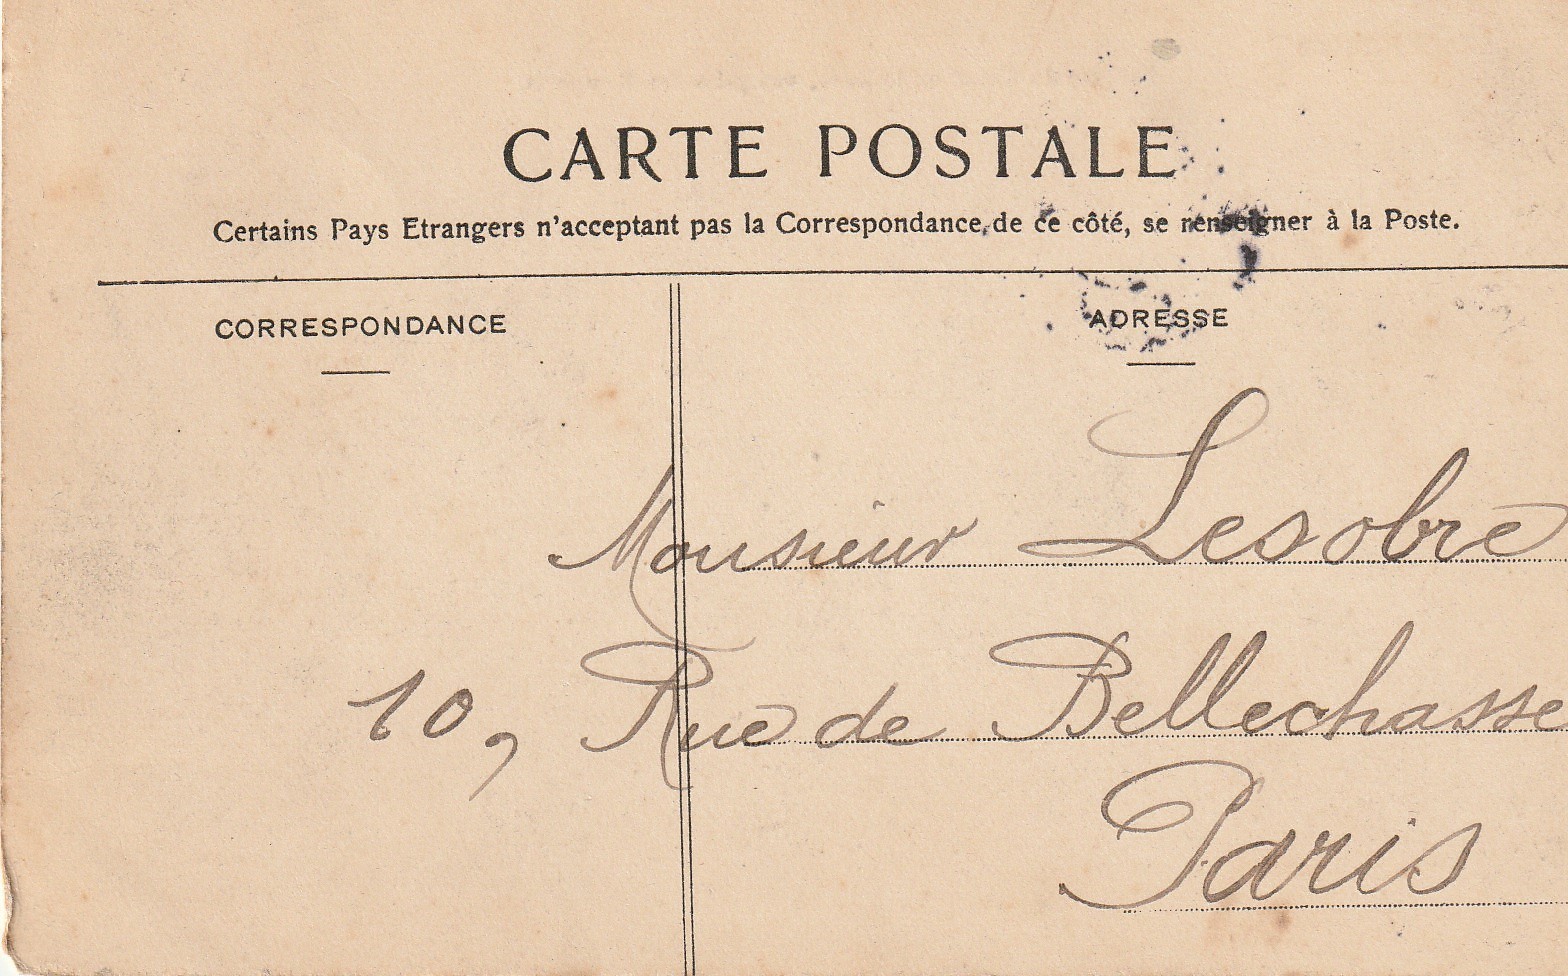 CARTE POSTALE
Certains Pays Etrangers n'acceptant pas la Correspondance de ce côté, se renseigner à la Poste.
CORRESPONDANCE
ADRESSE
Monsieur Lesobre
10, Rue de Bellechasse
Paris